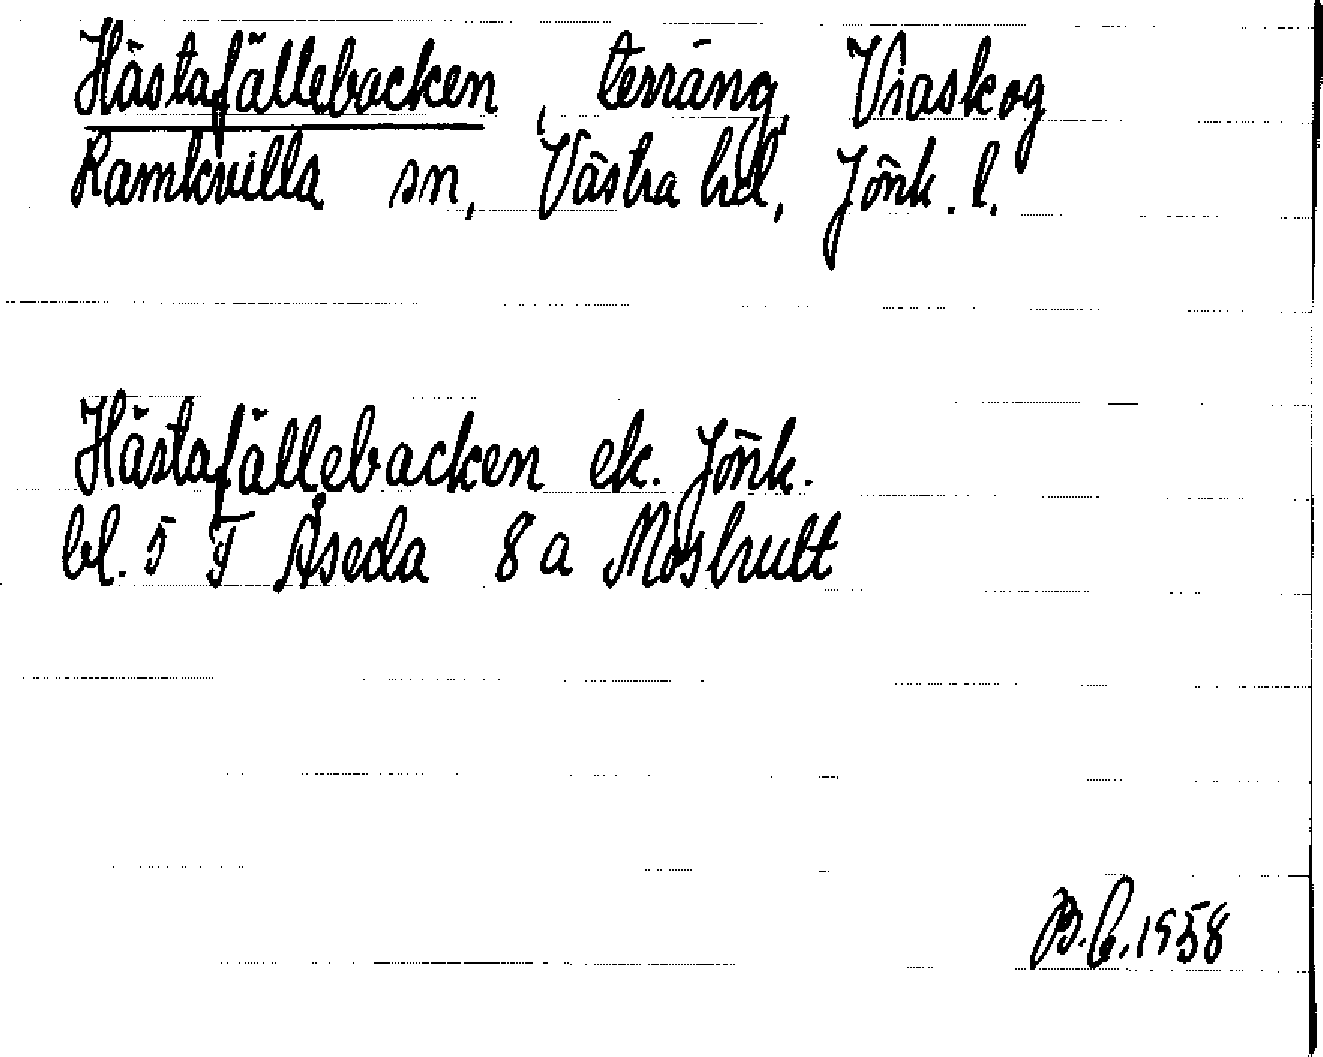 Hästafällebacken, terräng, Vraskog
Ramkvilla sn, Västra hd, Jönk. l.
Hästafällebacken ek. Jönk.
bl. 5 F Åseda 8 a Moshult
B.E. 1958